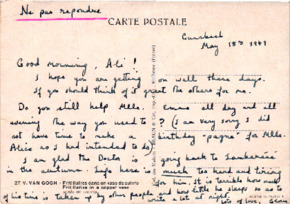 Ne pas repondre
CARTE POSTALE
May 15th 1947
Good morning, Ali!
I hope you are getting on well these days.
If you should think of it greet the others for me.
Do you still help Mlle. Emma all day and all
evening the way you used to? (I am very sorry I did
not have time to make a birthday "pagne" for Mlle.
Alice as I had intended to do)
I am glad the Doctor is going back to Lambaréné
in the autumn. Life here is much too hard and tiring
for him. It is terrible how much
of his time is taken up by other people and how little he sleeps so as to
write a lot at night.
Lots of love,
27 V. VAN GOGH - Fritillaires dans un vase de cuivre
Fritillaries in a copper vase